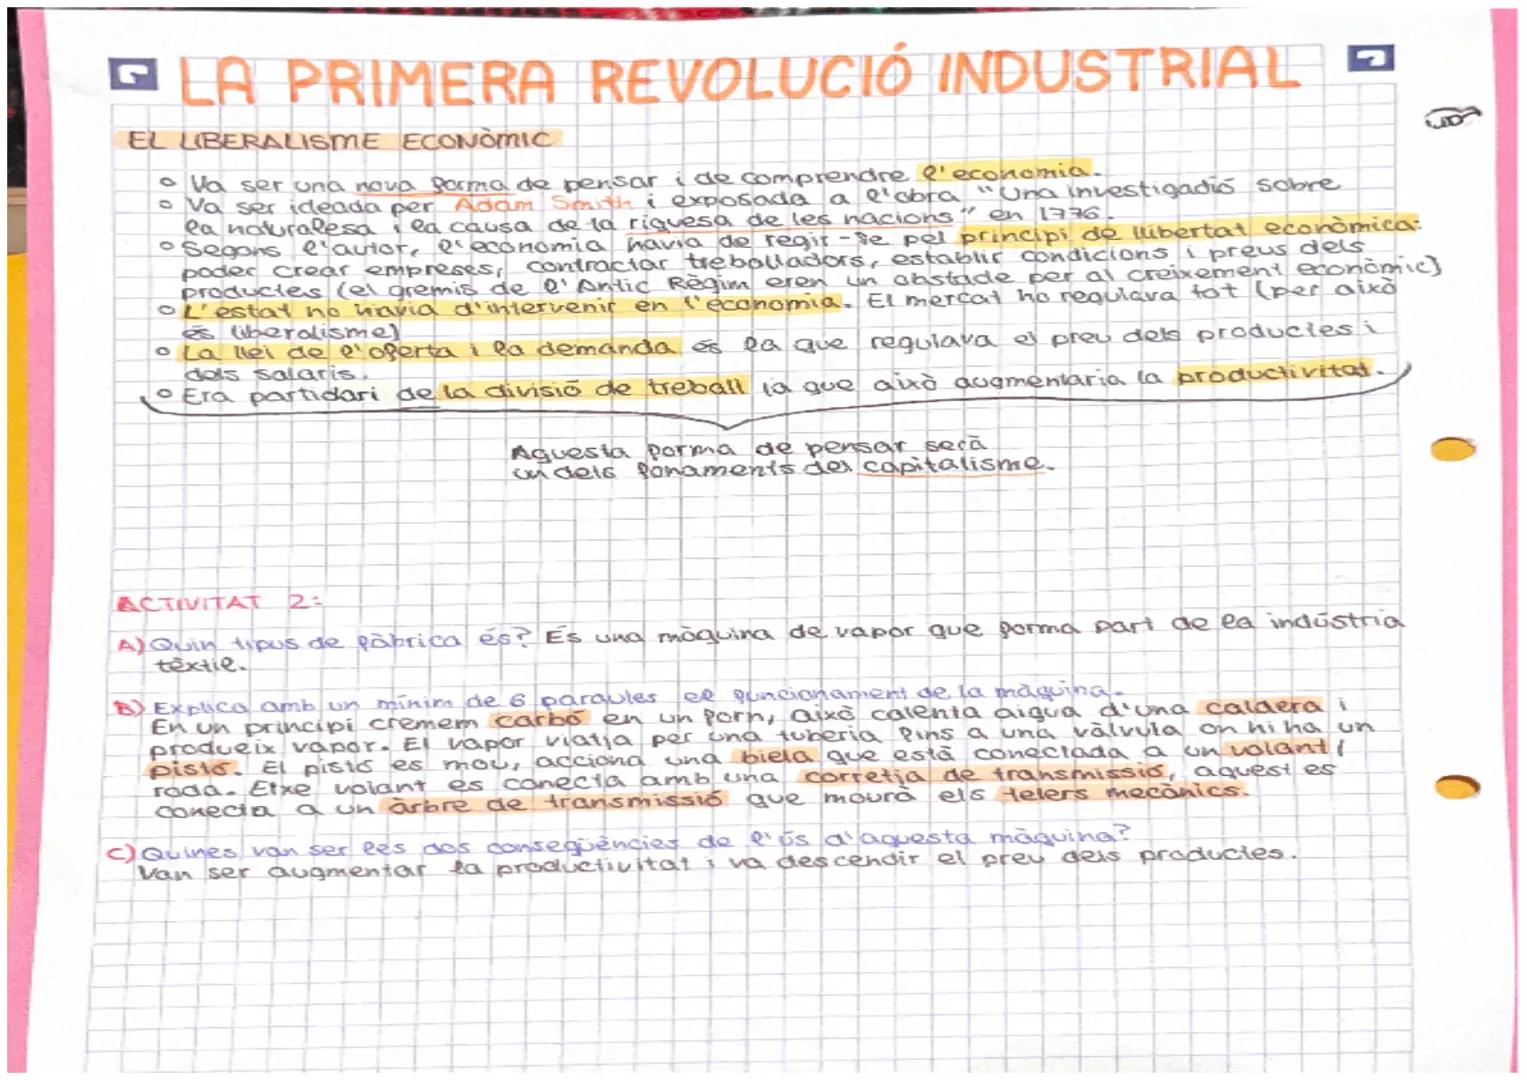 LA PRIMERA REVOLUCIÓ INDUSTRIAL
EL LIBERALISME ECONÒMIC
Va ser una nova forma de pensar i de comprendre l'economia.
Va ser ideada per Adam Smith i exposada a l'obra "Una investigació sobre
la naturalesa i la causa de la riquesa de les nacions" en 1776.
Segons l'autor, l'economia havia de regir-se pel principi de llibertat econòmica:
poder crear empreses, contractar treballadors, establir condicions i preus dels
productes (el gremis de l'Antic Règim eren un obstacle per al creixement econòmic)
L'estat no havia d'intervenir en l'economia. El mercat ho regulava tot (per això
és liberalisme)
La llei de l'oferta i la demanda és la que regulava el preu dels productes i
dels salaris.
Era partidari de la divisió de treball ja que això augmentaria la productivitat.
Aquesta forma de pensar serà
un dels fonaments del capitalisme.
ACTIVITAT 2:
A) Quin tipus de fàbrica és? És una màquina de vapor que forma part de la indústria
tèxtil.
B) Explica amb un mínim de 6 paraules el funcionament de la màquina.
En un principi cremem carbó en un forn, això calenta aigua d'una caldera i
produeix vapor. El vapor viatja per una tuberia fins a una vàlvula on hi ha un
pistó. El pistó es mou, acciona una biela que està conectada a un volant/
roda. Eixe volant es conecta amb una corretja de transmissió, aquest es
conecta a un àrbre de transmissió que mourà els telers mecànics.
C) Quines van ser les dos conseqüències de l'ús d'aquesta màquina?
Van ser augmentar la productivitat i va descendir el preu dels productes.